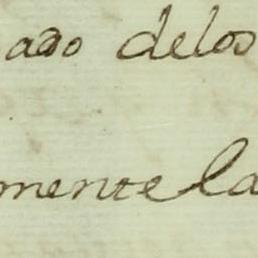 ado delos
mente la